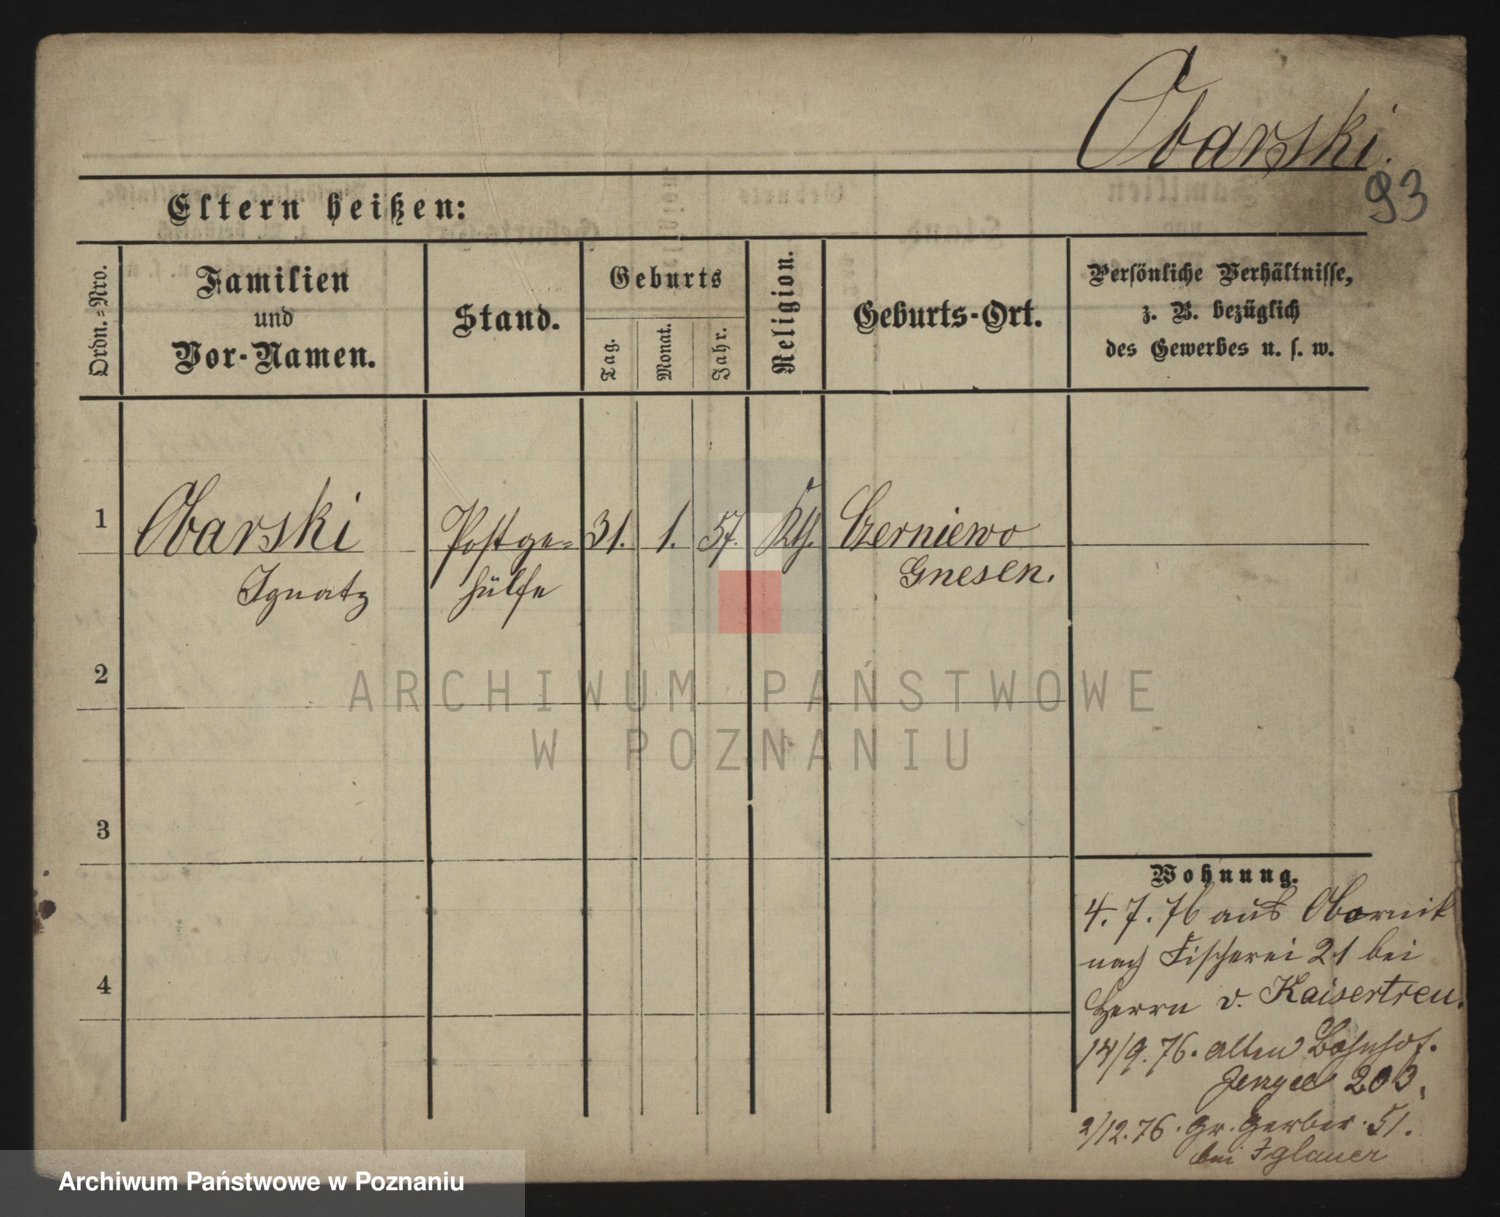 Obarski.
93
Eltern heißen:
Ordn.-Nro.
Familien
und
Vor-Namen.
Stand.
Geburts
Tag.
Monat.
Jahr.
Religion.
Geburts-Ort.
Persönliche Verhältnisse,
z. B. bezüglich
des Gewerbes u. s. w.
1
Obarski
Ignatz
Postge=
hülfe
31.
1.
57.
Kth.
Czerniewo
Gnesen.
2
3
4
Wohnung.
4. 7. 76 aus Obornik
nach Fischerei 21 bei
Herrn v. Kaisertreu.
14/9. 76. alten Bahnhof.
203.
2/12. 76. Gr. Gerber. 51.
bei Iglauer
ARCHIWUM PAŃSTWOWE
W POZNANIU
Archiwum Państwowe w Poznaniu